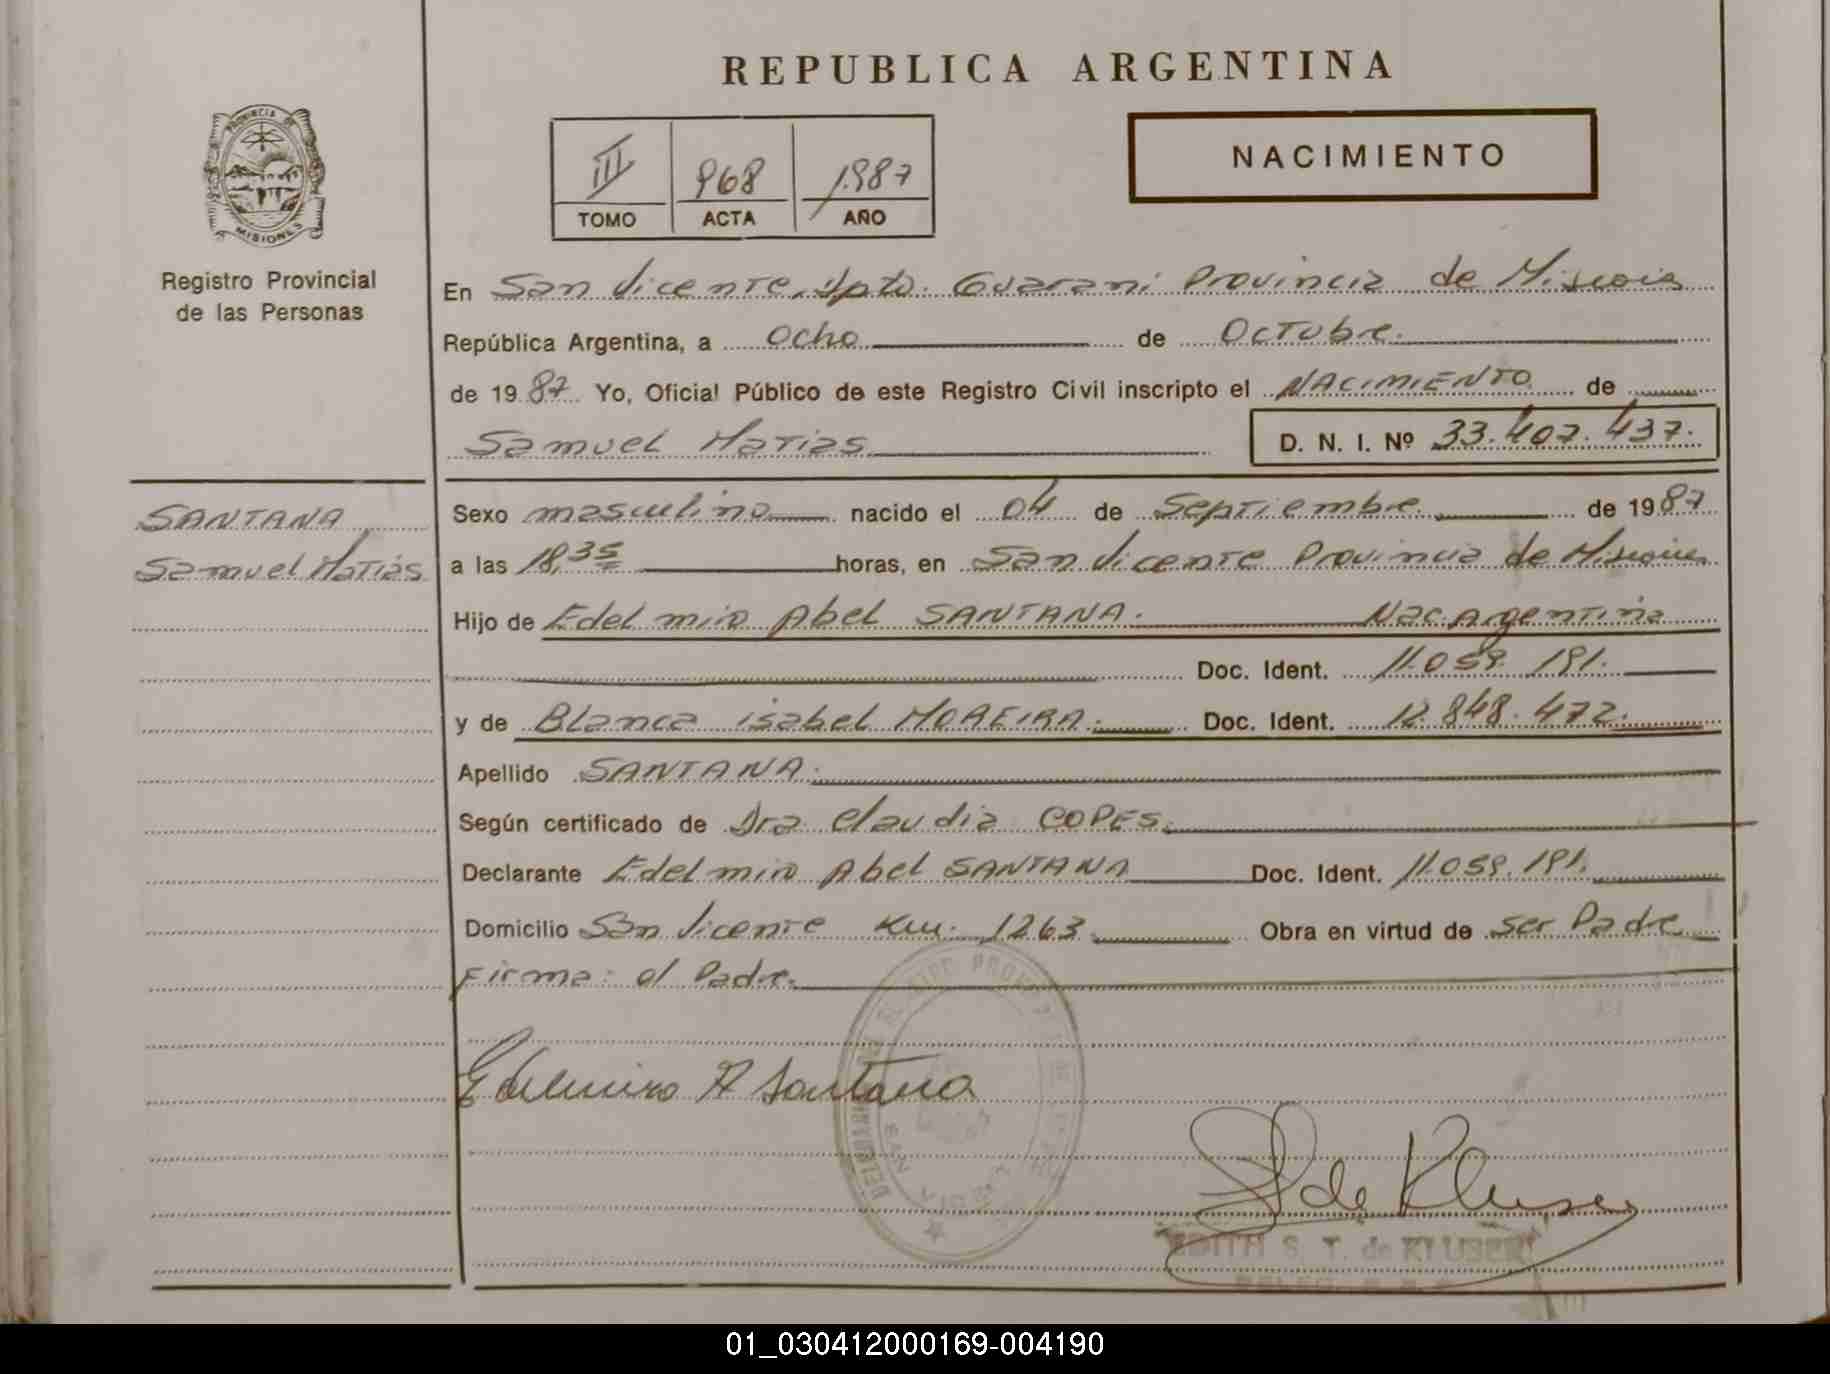 REPUBLICA ARGENTINA
PROVINCIA DE
MISIONES
Registro Provincial
de las Personas
III 968 1987
TOMO ACTA AÑO
NACIMIENTO
En San Vicente, Dpto. Guarani Provincia de Misiones
República Argentina, a Ocho de Octubre.
de 1987 Yo, Oficial Público de este Registro Civil inscripto el NACIMIENTO de
Samuel Matias
D. N. I. Nº 33.407.437.
SANTANA
Samuel Matias
Sexo masculino nacido el 04 de Septiembre. de 1987
a las 18,35 horas, en San Vicente Provincia de Misiones
Hijo de Edelmiro Abel SANTANA. Nac Argentina
Doc. Ident. 11.059.191.
y de Blanca isabel MOREIRA. Doc. Ident. 12.848.472.
Apellido SANTANA.
Según certificado de Dra Claudia COPES.
Declarante Edelmiro Abel SANTANA Doc. Ident. 11.059.191.
Domicilio San Vicente Km. 1263. Obra en virtud de ser Padre
Firma: el Padre.
Edelmiro A Santana
de
EDITH S. T. de KLUBER
01_030412000169-004190